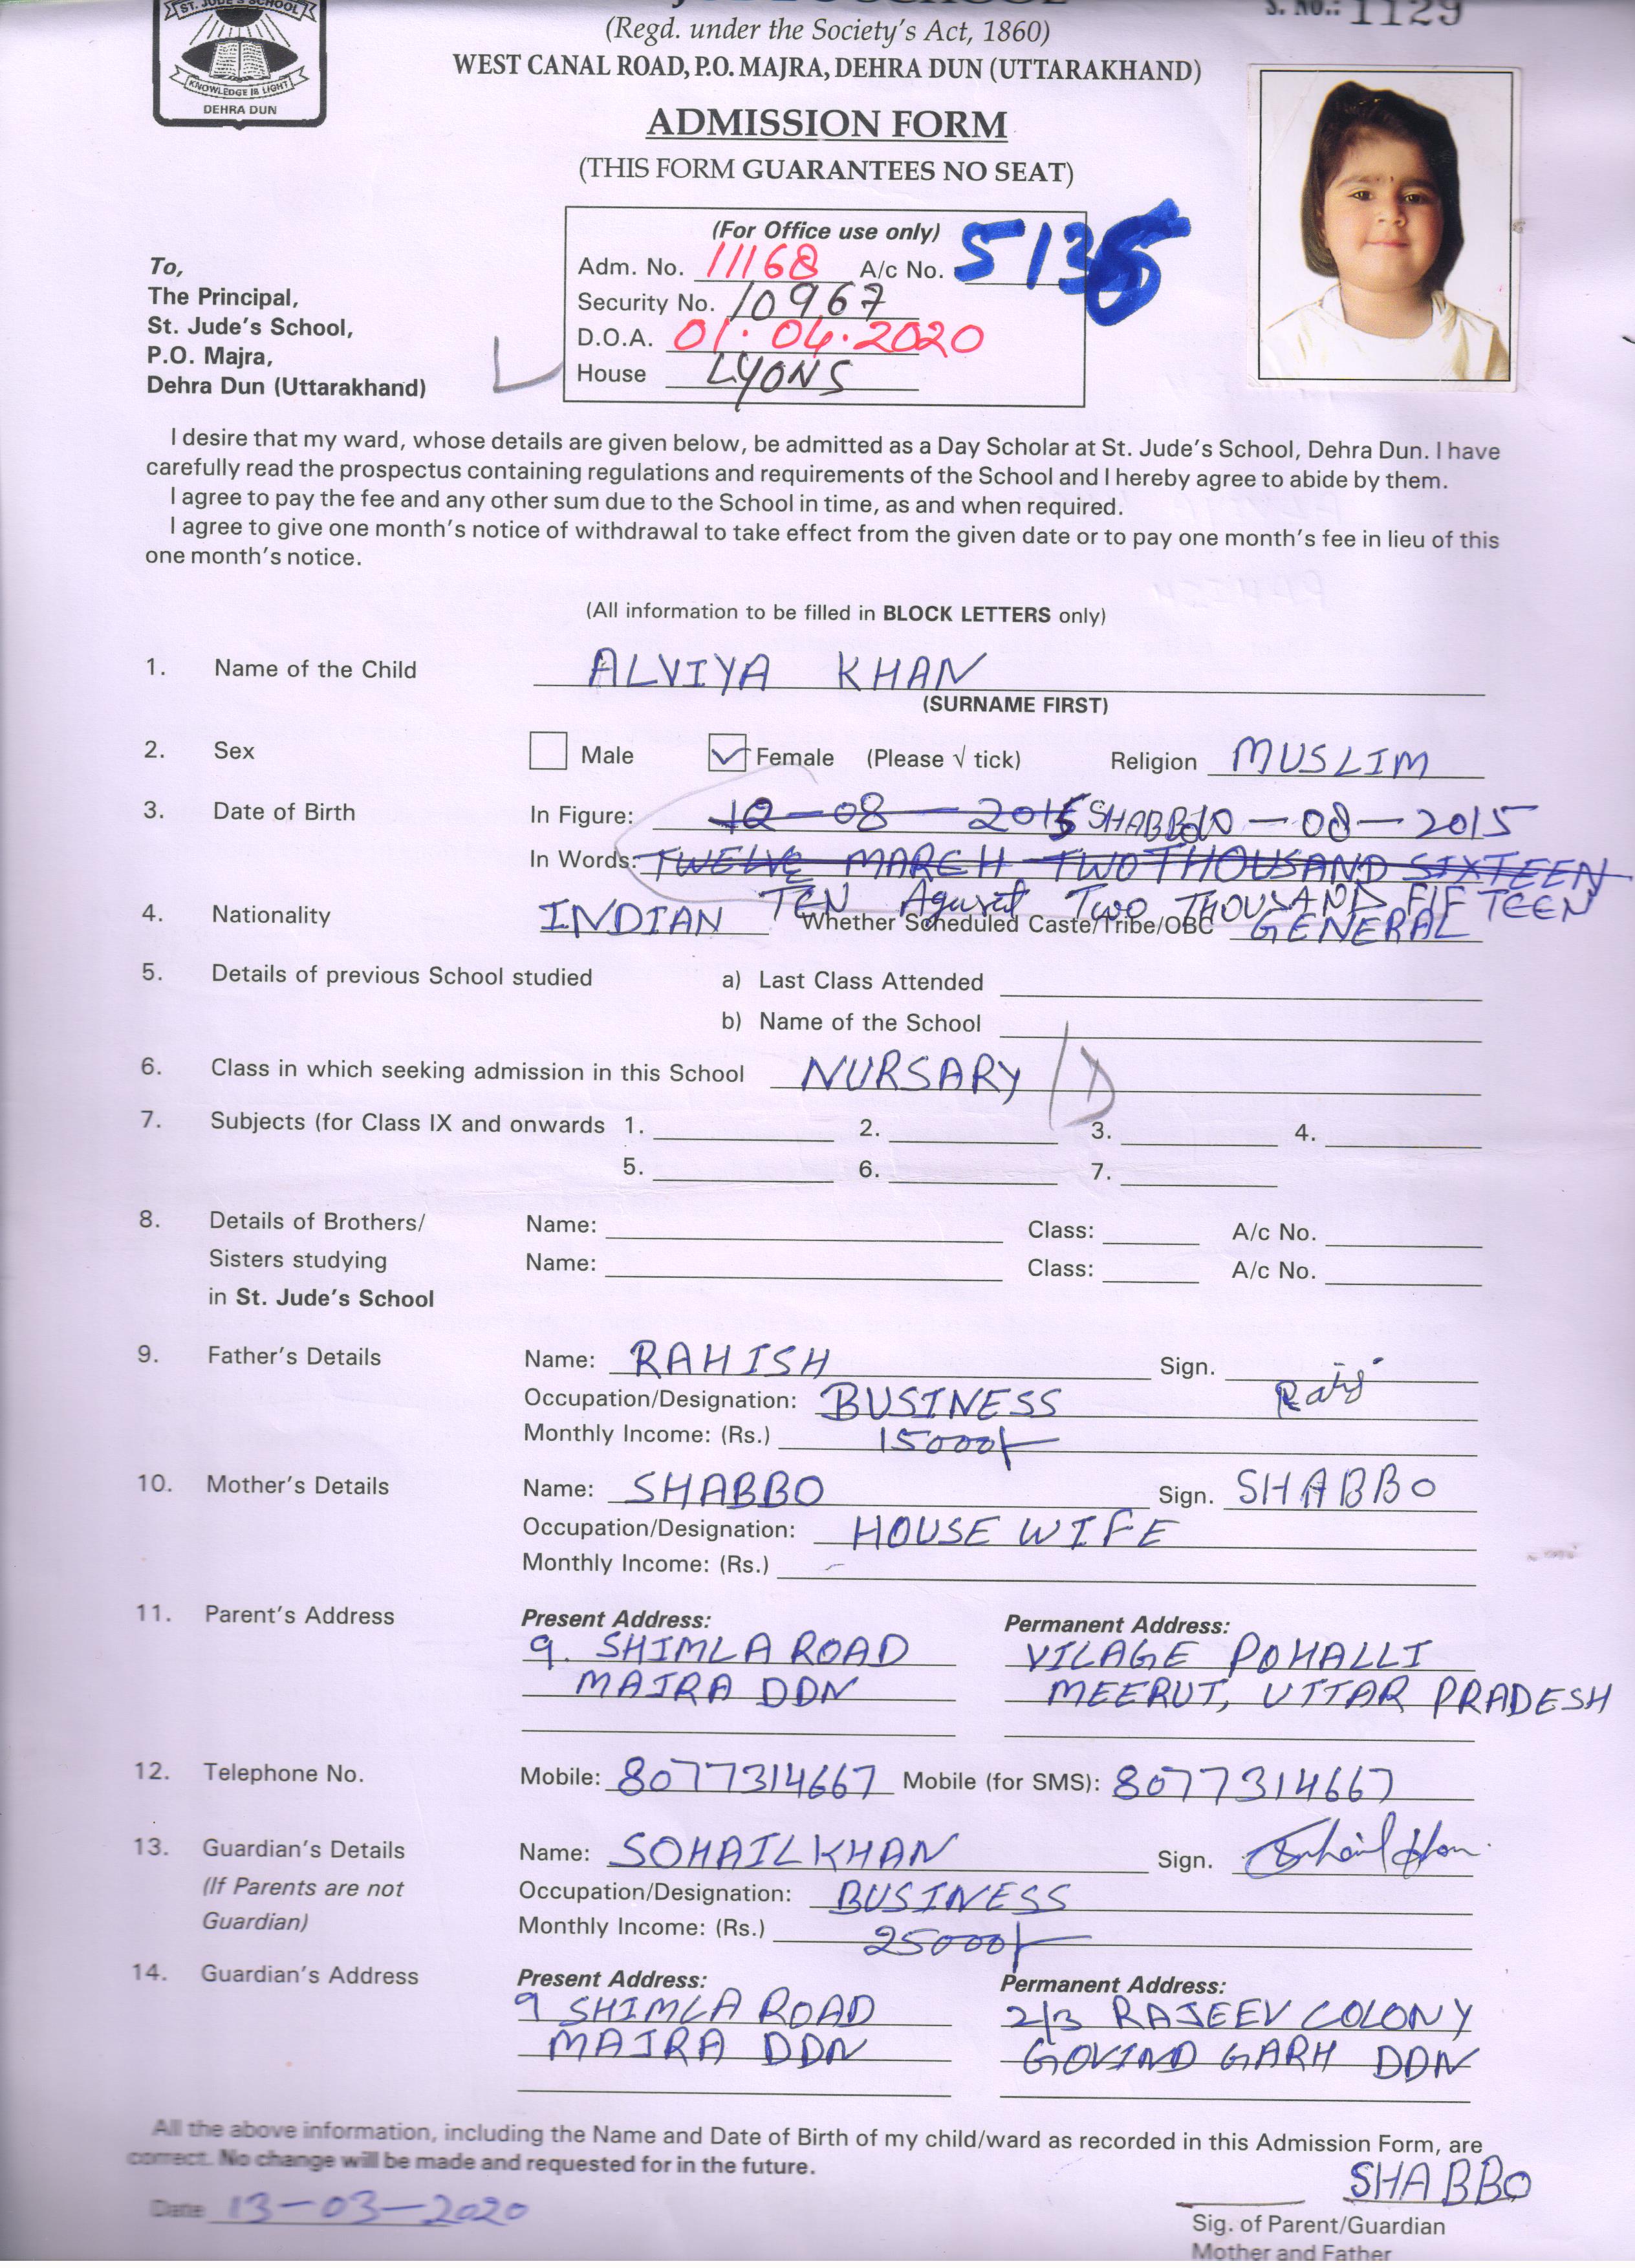 ST. JUDE'S SCHOOL
KNOWLEDGE IS LIGHT
DEHRA DUN
S. No.: 1129
(Regd. under the Society's Act, 1860)
WEST CANAL ROAD, P.O. MAJRA, DEHRA DUN (UTTARAKHAND)
ADMISSION FORM
(THIS FORM GUARANTEES NO SEAT)
(For Office use only)
Adm. No. 11168 A/c No. 5136
Security No. 10967
D.O.A. 01.04.2020
House LYONS
To,
The Principal,
St. Jude's School,
P.O. Majra,
Dehra Dun (Uttarakhand)
I desire that my ward, whose details are given below, be admitted as a Day Scholar at St. Jude's School, Dehra Dun. I have
carefully read the prospectus containing regulations and requirements of the School and I hereby agree to abide by them.
I agree to pay the fee and any other sum due to the School in time, as and when required.
I agree to give one month's notice of withdrawal to take effect from the given date or to pay one month's fee in lieu of this
one month's notice.
(All information to be filled in BLOCK LETTERS only)
1. Name of the Child ALVIYA KHAN
(SURNAME FIRST)
2. Sex Male Female (Please √ tick) Religion MUSLIM
3. Date of Birth In Figure: 12-08-2015 SHABBO 10-08-2015
In Words: TWELVE MARCH TWO THOUSAND SIXTEEN
TEN Agusat Two THOUSAND FIFTEEN
4. Nationality INDIAN Whether Scheduled Caste/Tribe/OBC GENERAL
5. Details of previous School studied a) Last Class Attended
b) Name of the School
6. Class in which seeking admission in this School NURSARY /D
7. Subjects (for Class IX and onwards 1. 2. 3. 4.
5. 6. 7.
8. Details of Brothers/ Name: Class: A/c No.
Sisters studying Name: Class: A/c No.
in St. Jude's School
9. Father's Details Name: RAHISH Sign. Rais
Occupation/Designation: BUSINESS
Monthly Income: (Rs.) 15000/-
10. Mother's Details Name: SHABBO Sign. SHABBO
Occupation/Designation: HOUSE WIFE
Monthly Income: (Rs.) -
11. Parent's Address Present Address: Permanent Address:
9. SHIMLA ROAD VILAGE POHALLI
MAJRA DDN MEERUT, UTTAR PRADESH
12. Telephone No. Mobile: 8077314667 Mobile (for SMS): 8077314667
13. Guardian's Details Name: SOHAIL KHAN Sign. Sohail Khan
(If Parents are not Occupation/Designation: BUSINESS
Guardian) Monthly Income: (Rs.) 25000/-
14. Guardian's Address Present Address: Permanent Address:
9 SHIMLA ROAD 2/3 RAJEEV COLONY
MAJRA DDN GOVIND GARH DDN
All the above information, including the Name and Date of Birth of my child/ward as recorded in this Admission Form, are
correct. No change will be made and requested for in the future.
SHABBO
Date 13-03-2020
Sig. of Parent/Guardian
Mother and Father